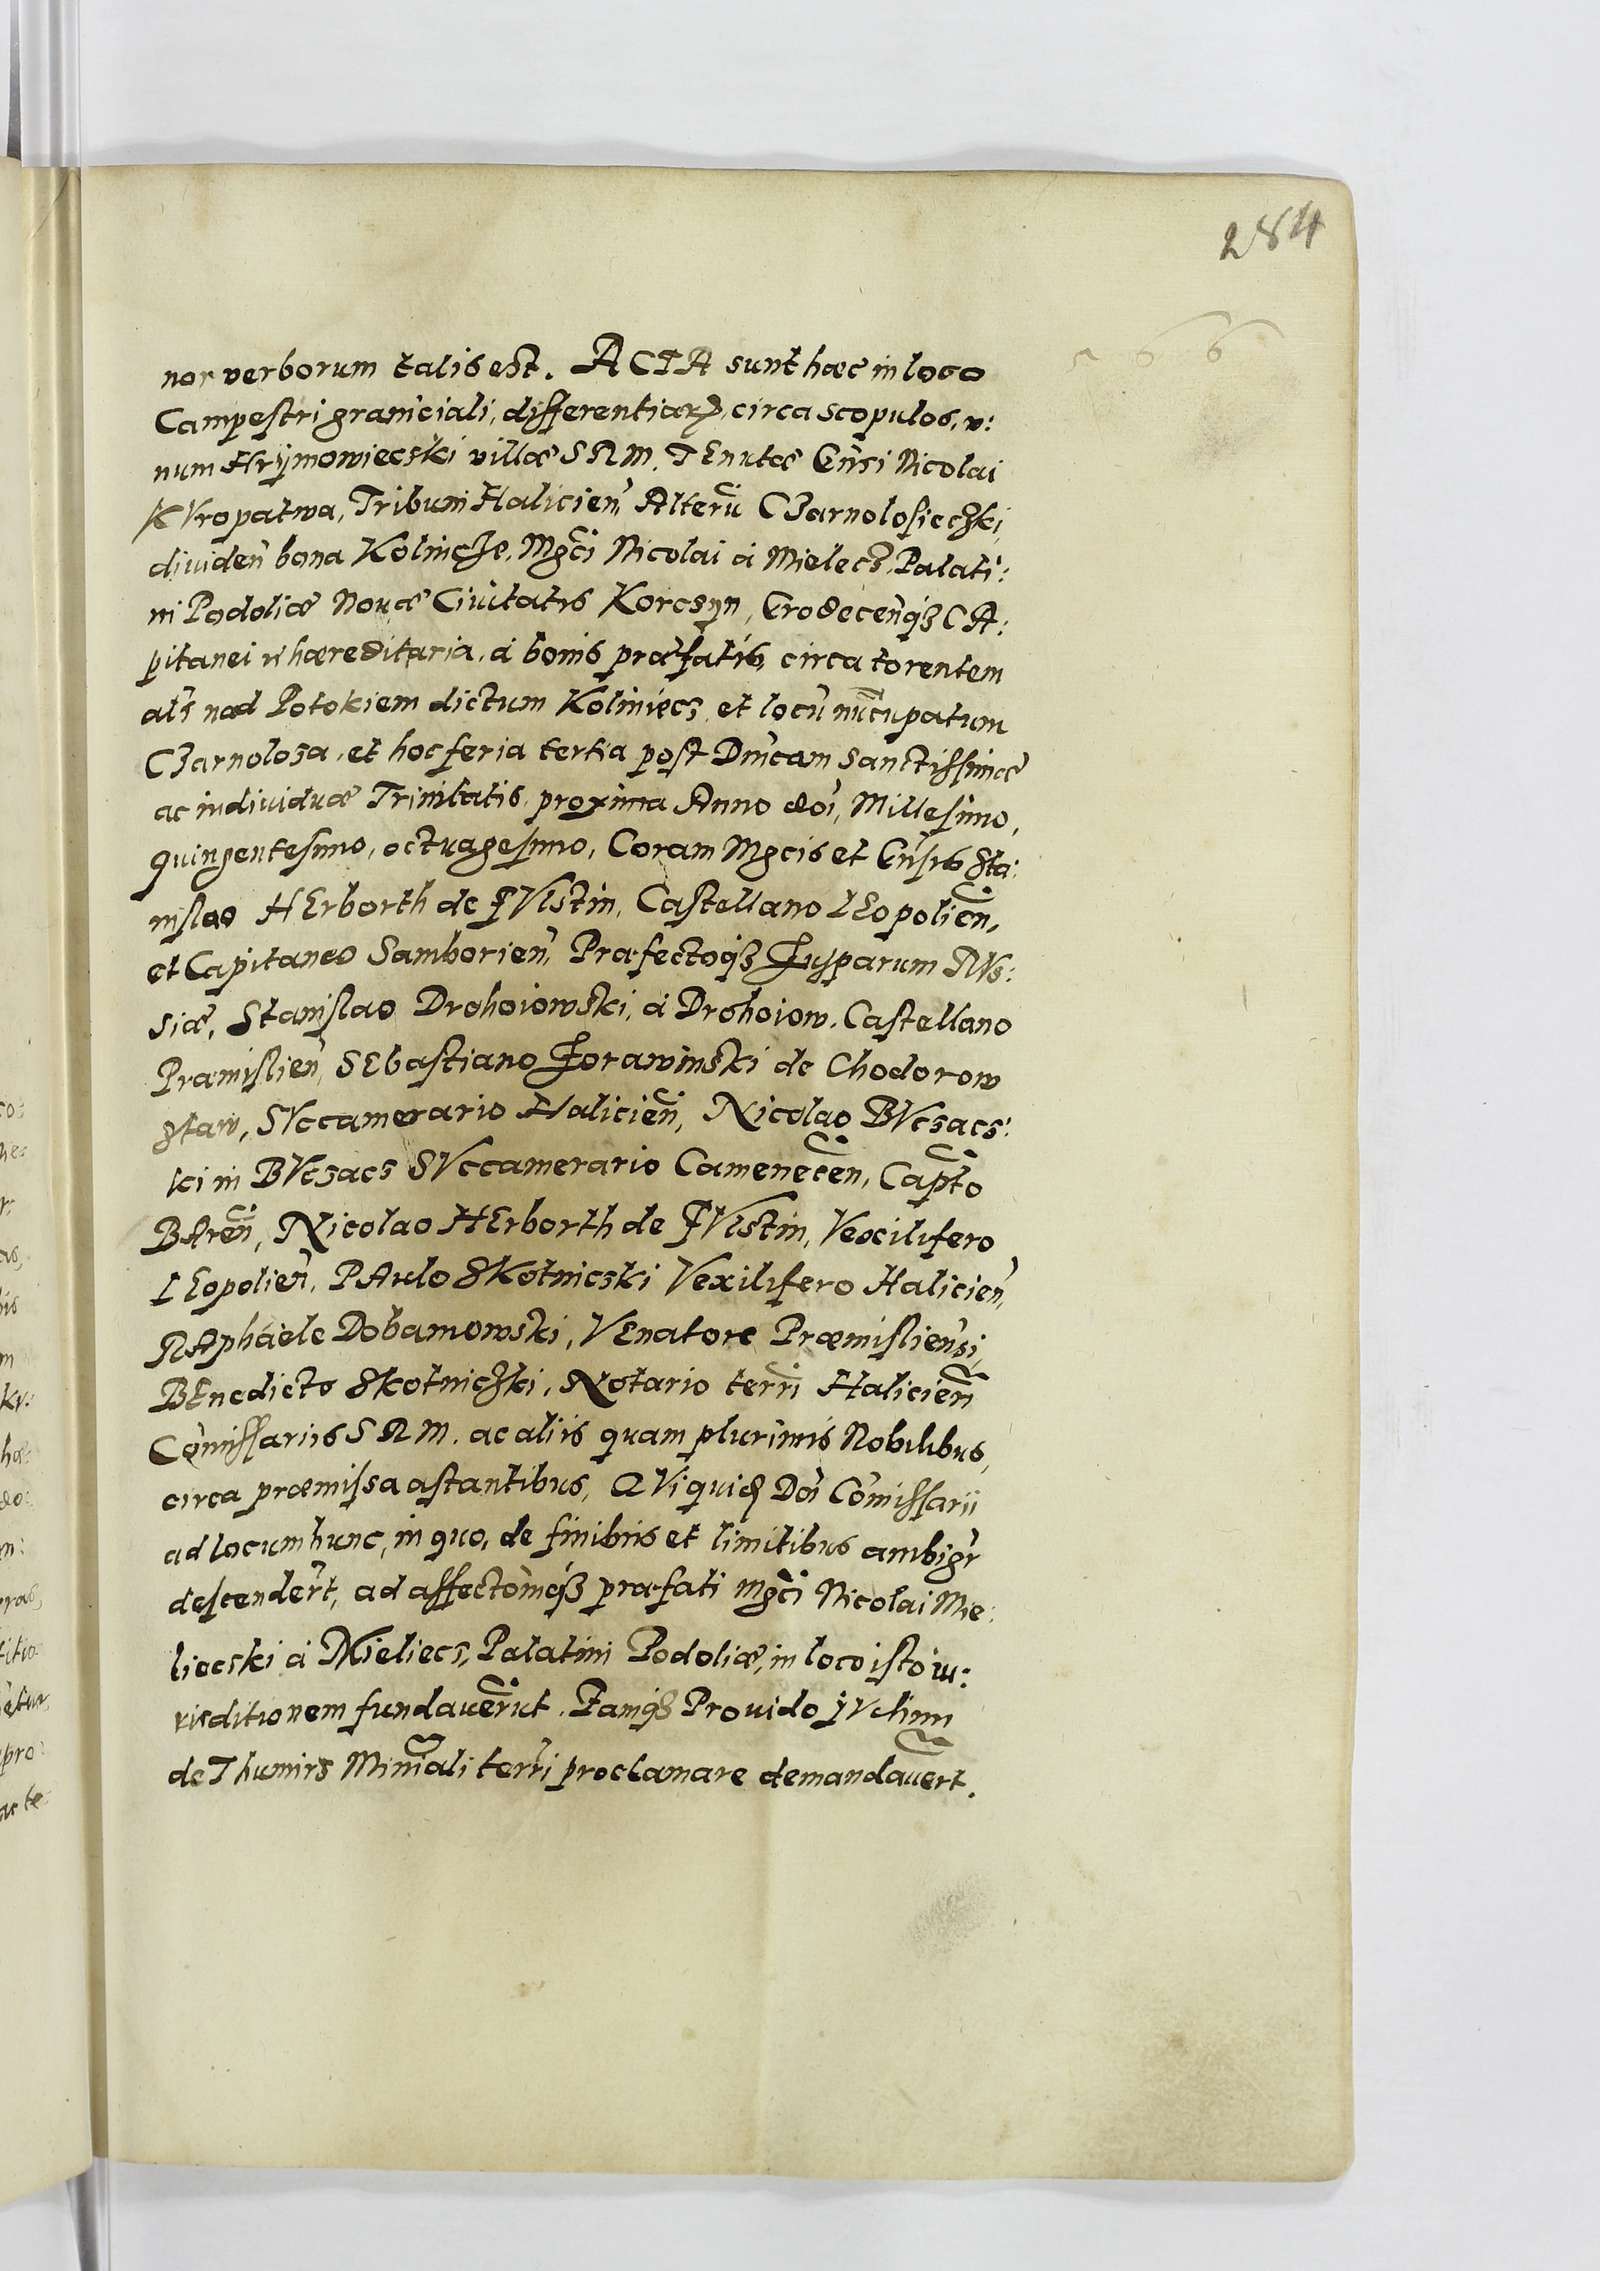 284
566
nor verborum talis est. ACTA sunt hæc in loco
Campestri graniciali, differentiarꝫ, circa scopulos, v:
num Hrÿmowiecski villæ SRM. TEnutæ Gn̄si Nicolai
KVropatwa, Tribuni Halicien̄, Alterū CZarnolosieczki,
diuiden̄ bona Kolincze, Mg̃ci Nicolai à Mielecz, Palati:
ni Podoliæ Nouæ Ciuitatis Korcsyn, Grodecen̄qꝫ CA:
pitanei hæreditaria, à bonis præfatis, circa torentem
al̄s nad Potokiem dictum Koliniecs, et locū nūcupatum
CZarnoloza, et hoc feria tertia post Dn̄icam Sanctissimæ
ac indiuiduæ Trinitatis, proxima Anno doī, Millesimo,
quingentesimo, octuagesimo, Coram Mgcis et Gn̄sis Sta:
nislao HErborth de FVlstin, Castellano LEopolien̄,
et Capitaneo Samborien̄, Præfectoqꝫ Supparum RVs:
siæ, Stanislao Drohoiowski, à Drohoiow, Castellano
Præmislien̄, SEbastiano Zorawinski de Chodorow
staw, SVccamerario Halicien̄, Nicolao BVcsacs:
ki in BVcsacs SVccamerario Camenecen̄, Capt̄o
BAren̄, Nicolao HErborth de FVlstin, Vexilifero
LEopolien̄, PAulo SKotnicski Vexilifero Halicien̄,
RAphaele Dobamowski, VEnatore Præmislien̄si,
BEnedicto Skotniczki, Notario terr̄i Halicien̄
Com̄issariis SRM. ac aliis quam plurimis Nobilibus,
circa præmissa astantibus, QVi quid Doī Com̄issarii
ad locum hunc, in quo, de finibus et limitibus ambigr̄
descender̄t, ad affectōm̄qꝫ præfati Mg̃ci Nicolai Mie:
liecski à Mieliecs, Palatini Podoliæ, in loco isto iu:
risditionem fundauer̄ut. Famqꝫ Prouido IVchim
de Thumirs Min̄iali terr̄i proclamare demandauer̄t.